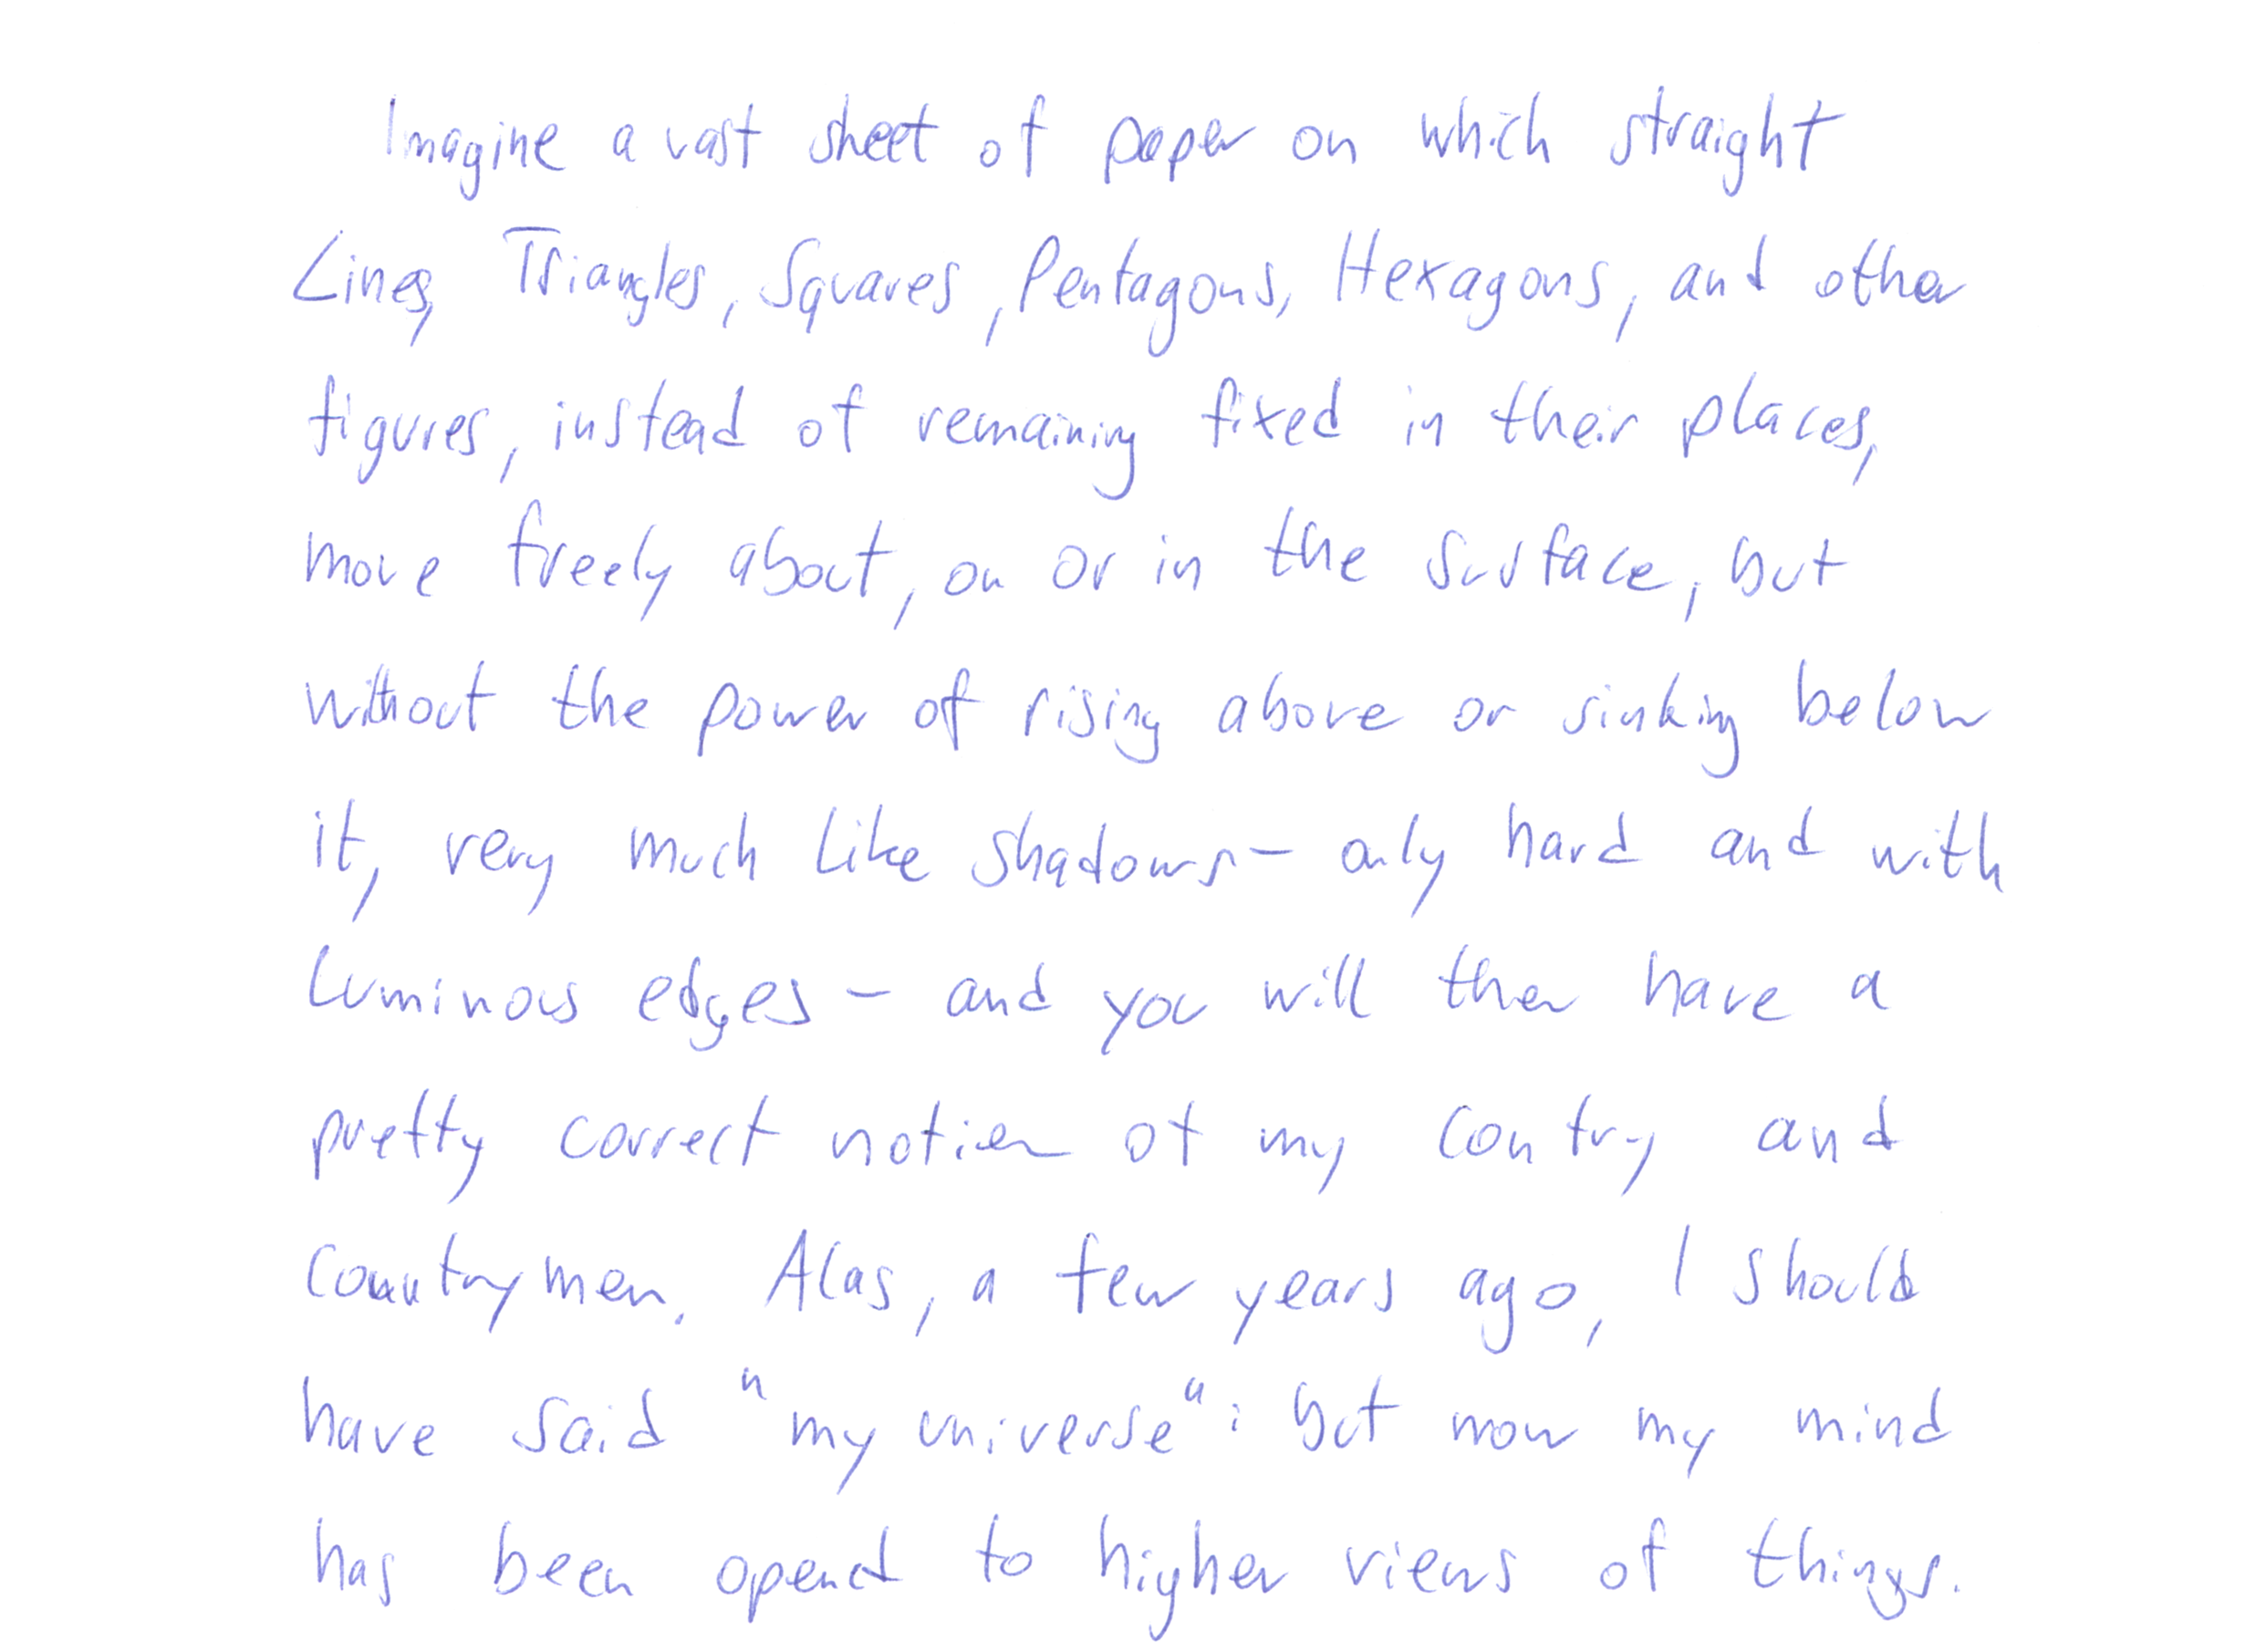 Imagine a vast sheet of paper on which straight
Lines, Triangles, Squares, Pentagons, Hexagons, and other
figures, instead of remaining fixed in their places,
move freely about, on or in the surface, but
without the power of rising above or sinking below
it, very much like shadows - only hard and with
luminous edges - and you will then have a
pretty correct notion of my contry and
countrymen. Alas, a few years ago, I should
have said "my universe": but now my mind
has been opened to higher views of things.